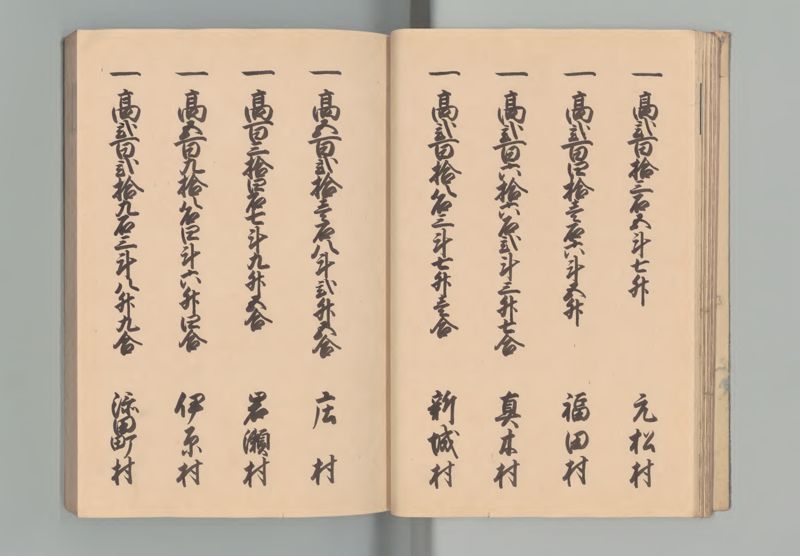 一高弐百拾三石五斗七升 元松村
一高弐百四拾壱石六斗五升 福田村
一高弐百六拾六石弐斗三升七合 真木村
一高弐百拾八石三斗七升壱合 新城村
一高五百弐拾壱石八斗弐升五合 庄村
一高百三拾四石七斗九升五合 岩瀬村
一高五百九拾八石四斗六升四合 伊原村
一高弐百弐拾九石三斗八升九合 添田町村